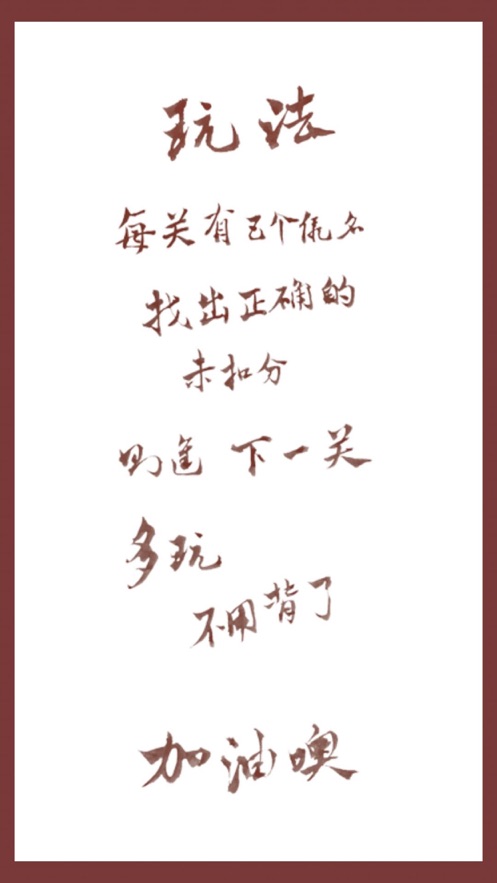 玩法
每关有五个假名
找出正确的
未扣分
则進 下一关
多玩
不用背了
加油噢